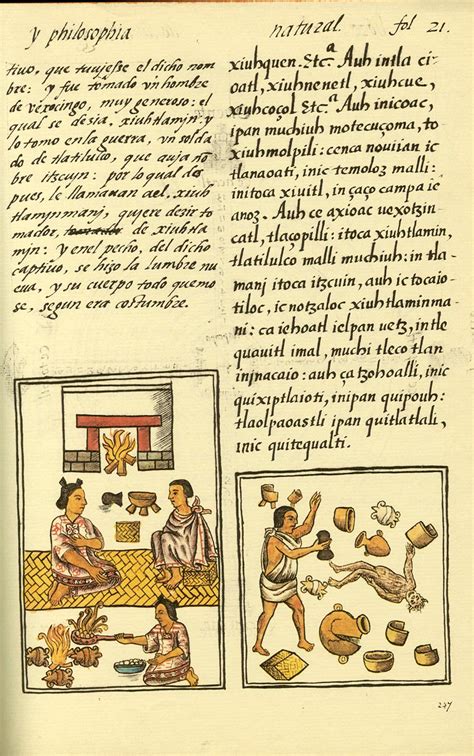 y philosophia
natural.
fol 21.
tiuo, que tuuiesse el dicho nom
bre: y fue tomado vn hombre
de vexocingo, muy generoso: el
qual se desia, xiuhtlamjn: y
lo tomo en la guerra, vn solda
do de tlatilulco, que auja no
bre itzcujn: por lo qual des
pues, le llamauan a el, xiuh
tlamjnmanj, quiere desir to
mador, de xiuhtla
mjn: y en el pecho, del dicho
captiuo, se hizo la lumbre nu
eua, y su cuerpo todo quemo
se, segun era costumbre.
xiuhquen. Etc.a Auh intla ci
oatl, xiuhnenetl, xiuhcue,
xiuhcoçol. Etc.a Auh inicoac,
ipan muchiuh motecuçoma, to
xiuhmolpili: cenca nouiian ic
tlanaoati, inic temoloz malli:
initoca xiuitl, in çaço campa ie
anoz. Auh ce axioac uexotzin
catl, tlaçopilli: itoca xiuhtlamin,
tlatilulco malli muchiuh: in tla
manj itoca itzcuin, auh ic tocaio
tiloc, ic notzaloc xiuhtlaminma
ni: ca iehoatl ielpan uetz, in tle
quauitl imal, muchi tleco tlan
injnacaio: auh ça tzohoalli, inic
quixiptlaioti, inipan quipouh:
tlaolpaoastli ipan quitlatlali,
inic quitequalti.
227